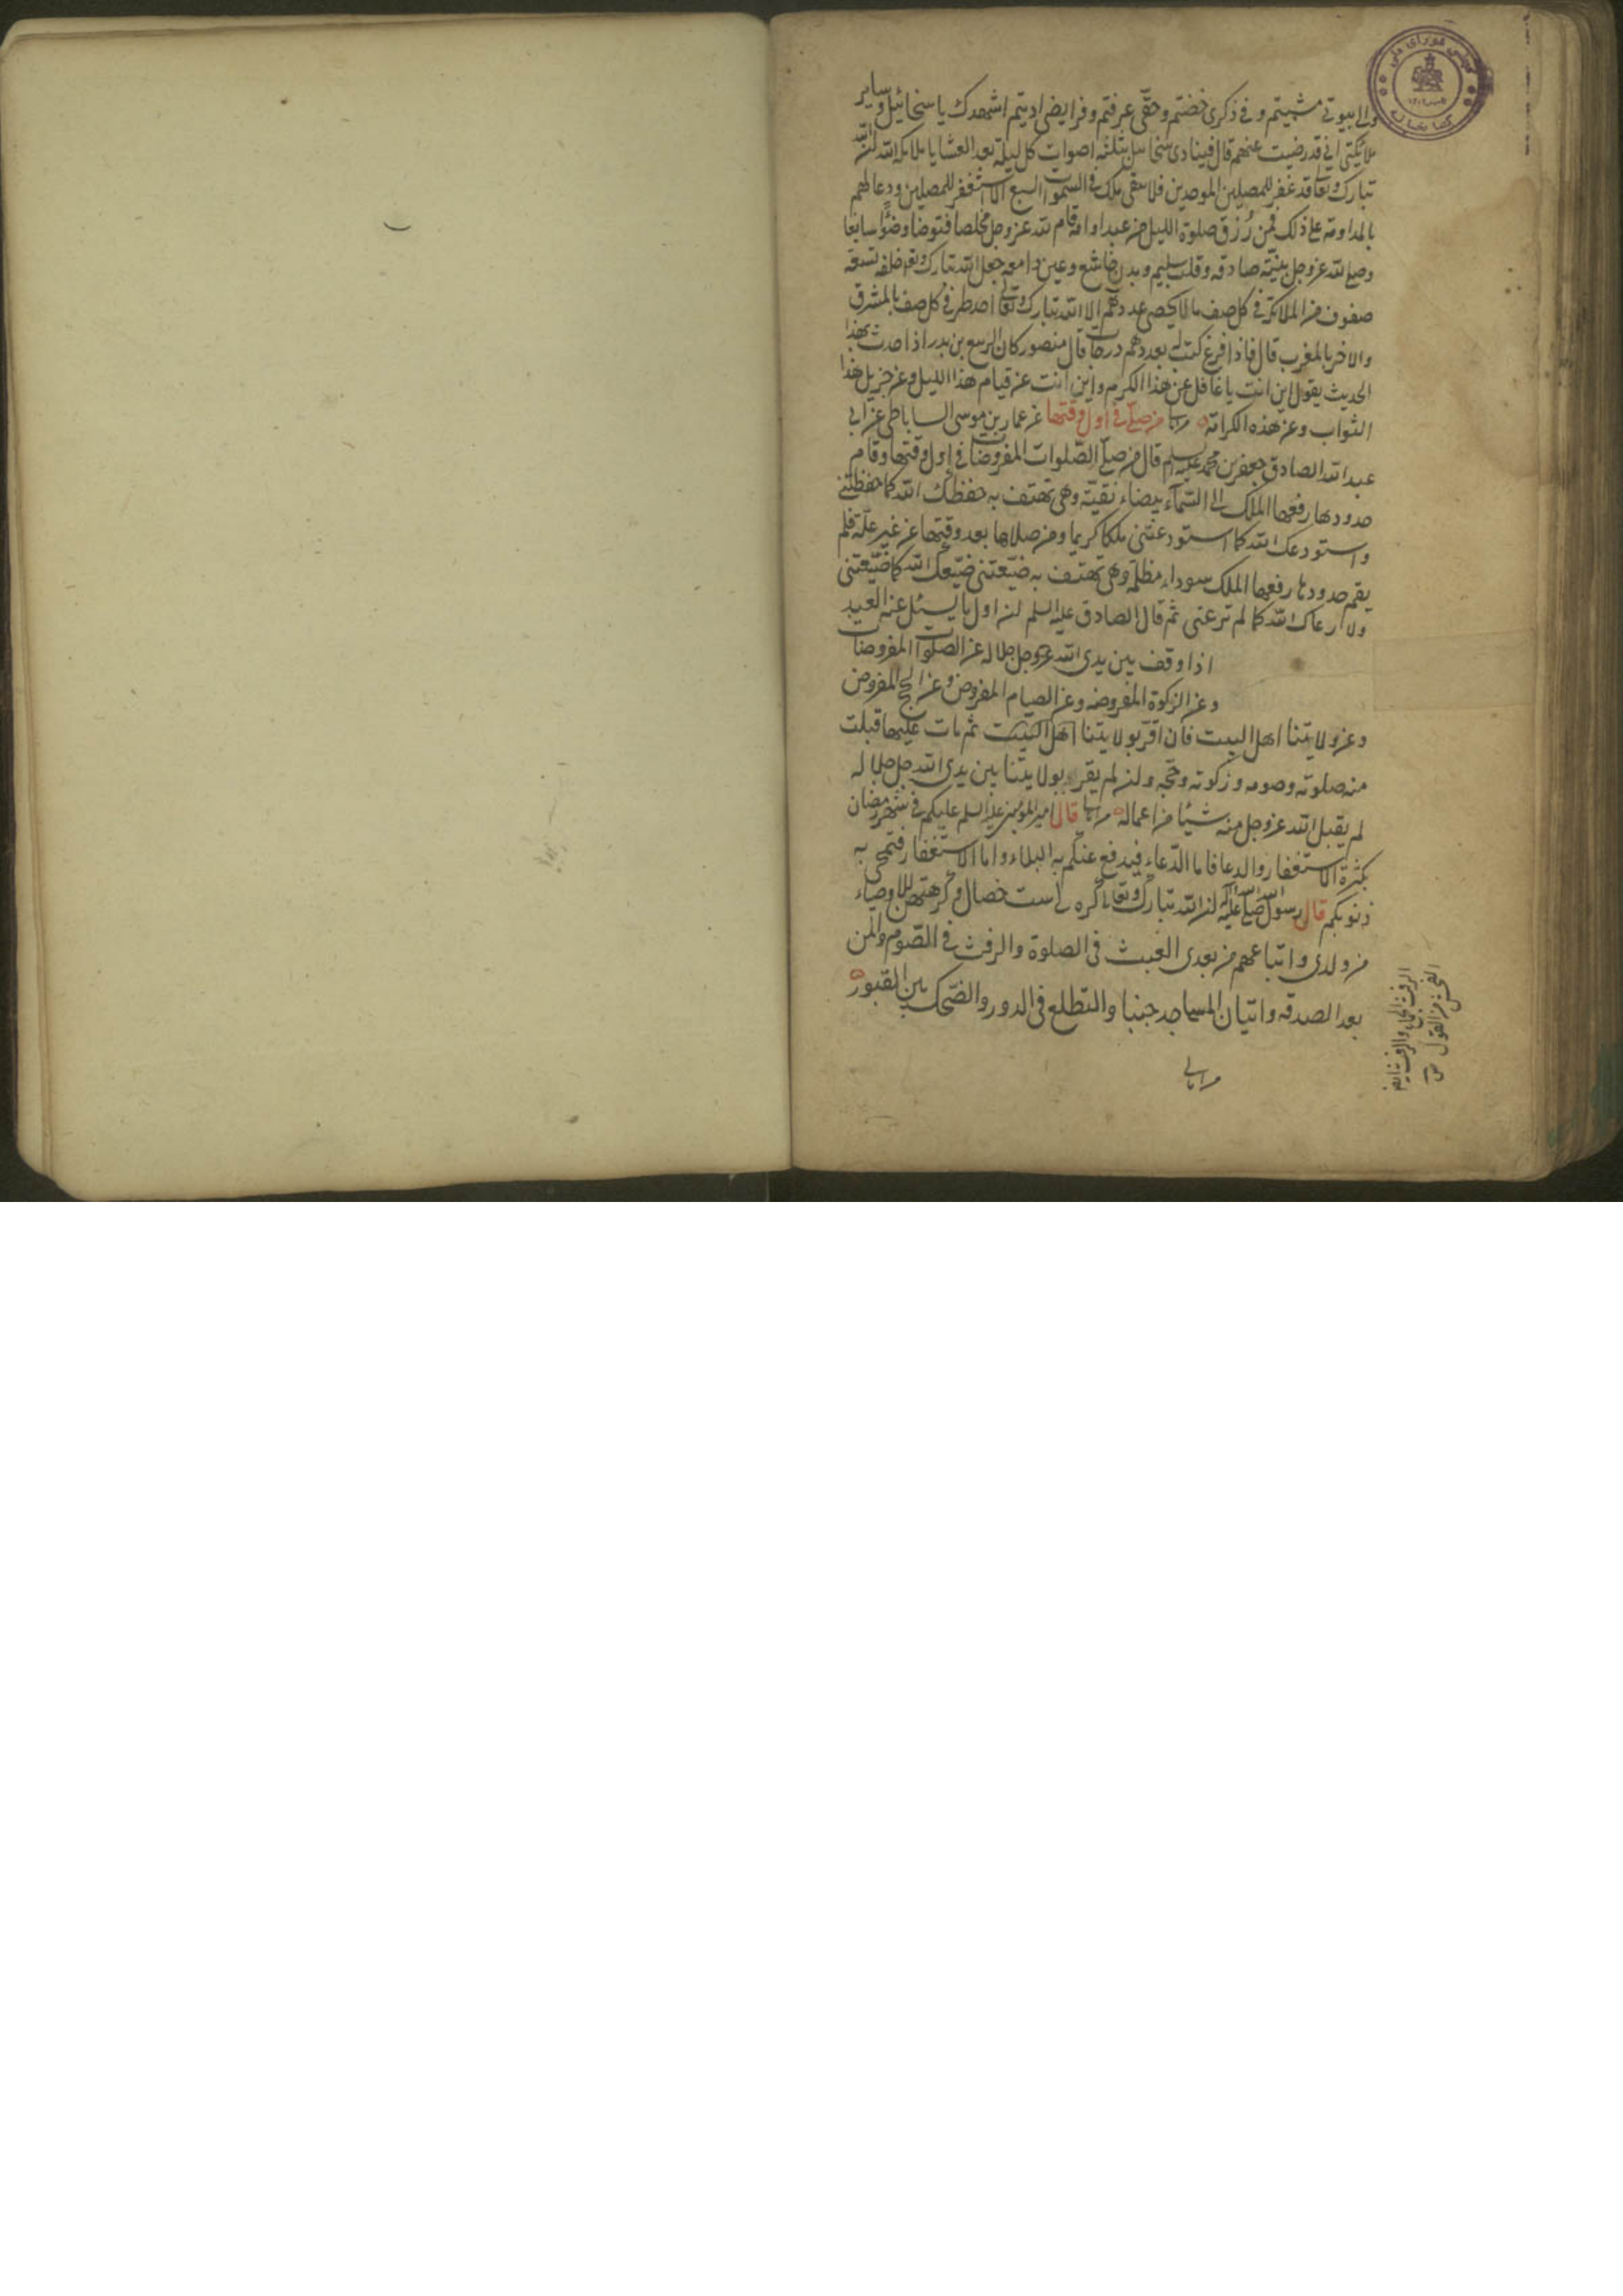 والى بيوتي مشيتم وفي ذكري خضتم وحقي عرفتم وفرايضي اديتم اشهدك يا سخائيل وساير
ملائكتي اني قد رضيت عنهم قال فينادي سخائيل بثلثة اصوات كل ليلة بعد العشا يا ملائكة الله ان الله
تبارك وتعا قد غفر للمصلين الموحدين فلا يبقى ملك في السموات السبع الا استغفر للمصلين ودعا لهم
بالمداومة على ذلك فمن رزق صلوة الليل من عبد او امة قام لله عز وجل مخلصا فتوضا وضوءا سابغا
وصلى لله عز وجل بنية صادقة وقلب سليم وبدن خاشع وعين دامعة جعل الله تبارك وتعا خلفه تسعة
صفوف من الملائكة في كل صف ما لا يحصي عددهم الا الله تبارك وتعالى احد طرفي كل صف بالمشرق
والاخر بالمغرب قال فاذا فرغ كتب له بعددهم درجات قال منصور كان الربيع بن بدر اذا حدث بهذا
الحديث يقول اين انت يا غافل عن هذا الكرم واين انت عن قيام هذا الليل وعن جزيل هذا
الثواب وعن هذه الكرامة من صلى في اول وقتها عن عمار بن موسى الساباطي عن ابي
عبد الله الصادق جعفر بن محمد عليه السلم قال من صلى الصلوات المفروضات في اول وقتها وقام
حدودها رفعها الملك الى السماء بيضاء نقية وهي تهتف به حفظك الله كما حفظتني
واستودعك الله كما استودعتني ملكا كريما ومن صلاها بعد وقتها عن غير علة فلم
يقم حدودها رفعها الملك سوداء مظلمة وهي تهتف به ضيعتني ضيعك الله كما ضيعتني
ولا رعاك الله كما لم ترعني ثم قال الصادق عليه السلم ان اول ما يسئل عنه العبد
اذا وقف بين يدي الله عز وجل جلاله عن الصلوات المفروضات
وعن الزكوة المفروضه وعن الصيام المفروض وعن الحج المفروض
وعن ولايتنا اهل البيت فان اقر بولايتنا اهل البيت ثم مات عليها قبلت
منه صلوته وصومه وزكوته وحجه وان لم يقر بولايتنا بين يدي الله جل جلاله
لم يقبل الله عز وجل منه شيئا من اعماله قال امير المؤمنين عليه السلم عليكم في شهر رمضان
بكثرة الاستغفار والدعا فاما الدعاء فيدفع عنكم به البلاء واما الاستغفار فتمحى به
ذنوبكم قال رسول الله صلى الله عليه وآله ان الله تبارك وتعالى كره لي ست خصال وكرهتهن للاوصياء
من ولدي واتباعهم من بعدي العبث في الصلوة والرفث في الصوم والمن
بعد الصدقه واتيان المساجد جنبا والتطلع في الدور والضحك بين القبور
الرفث الجماع والرفث ايضا
الفحش من القول